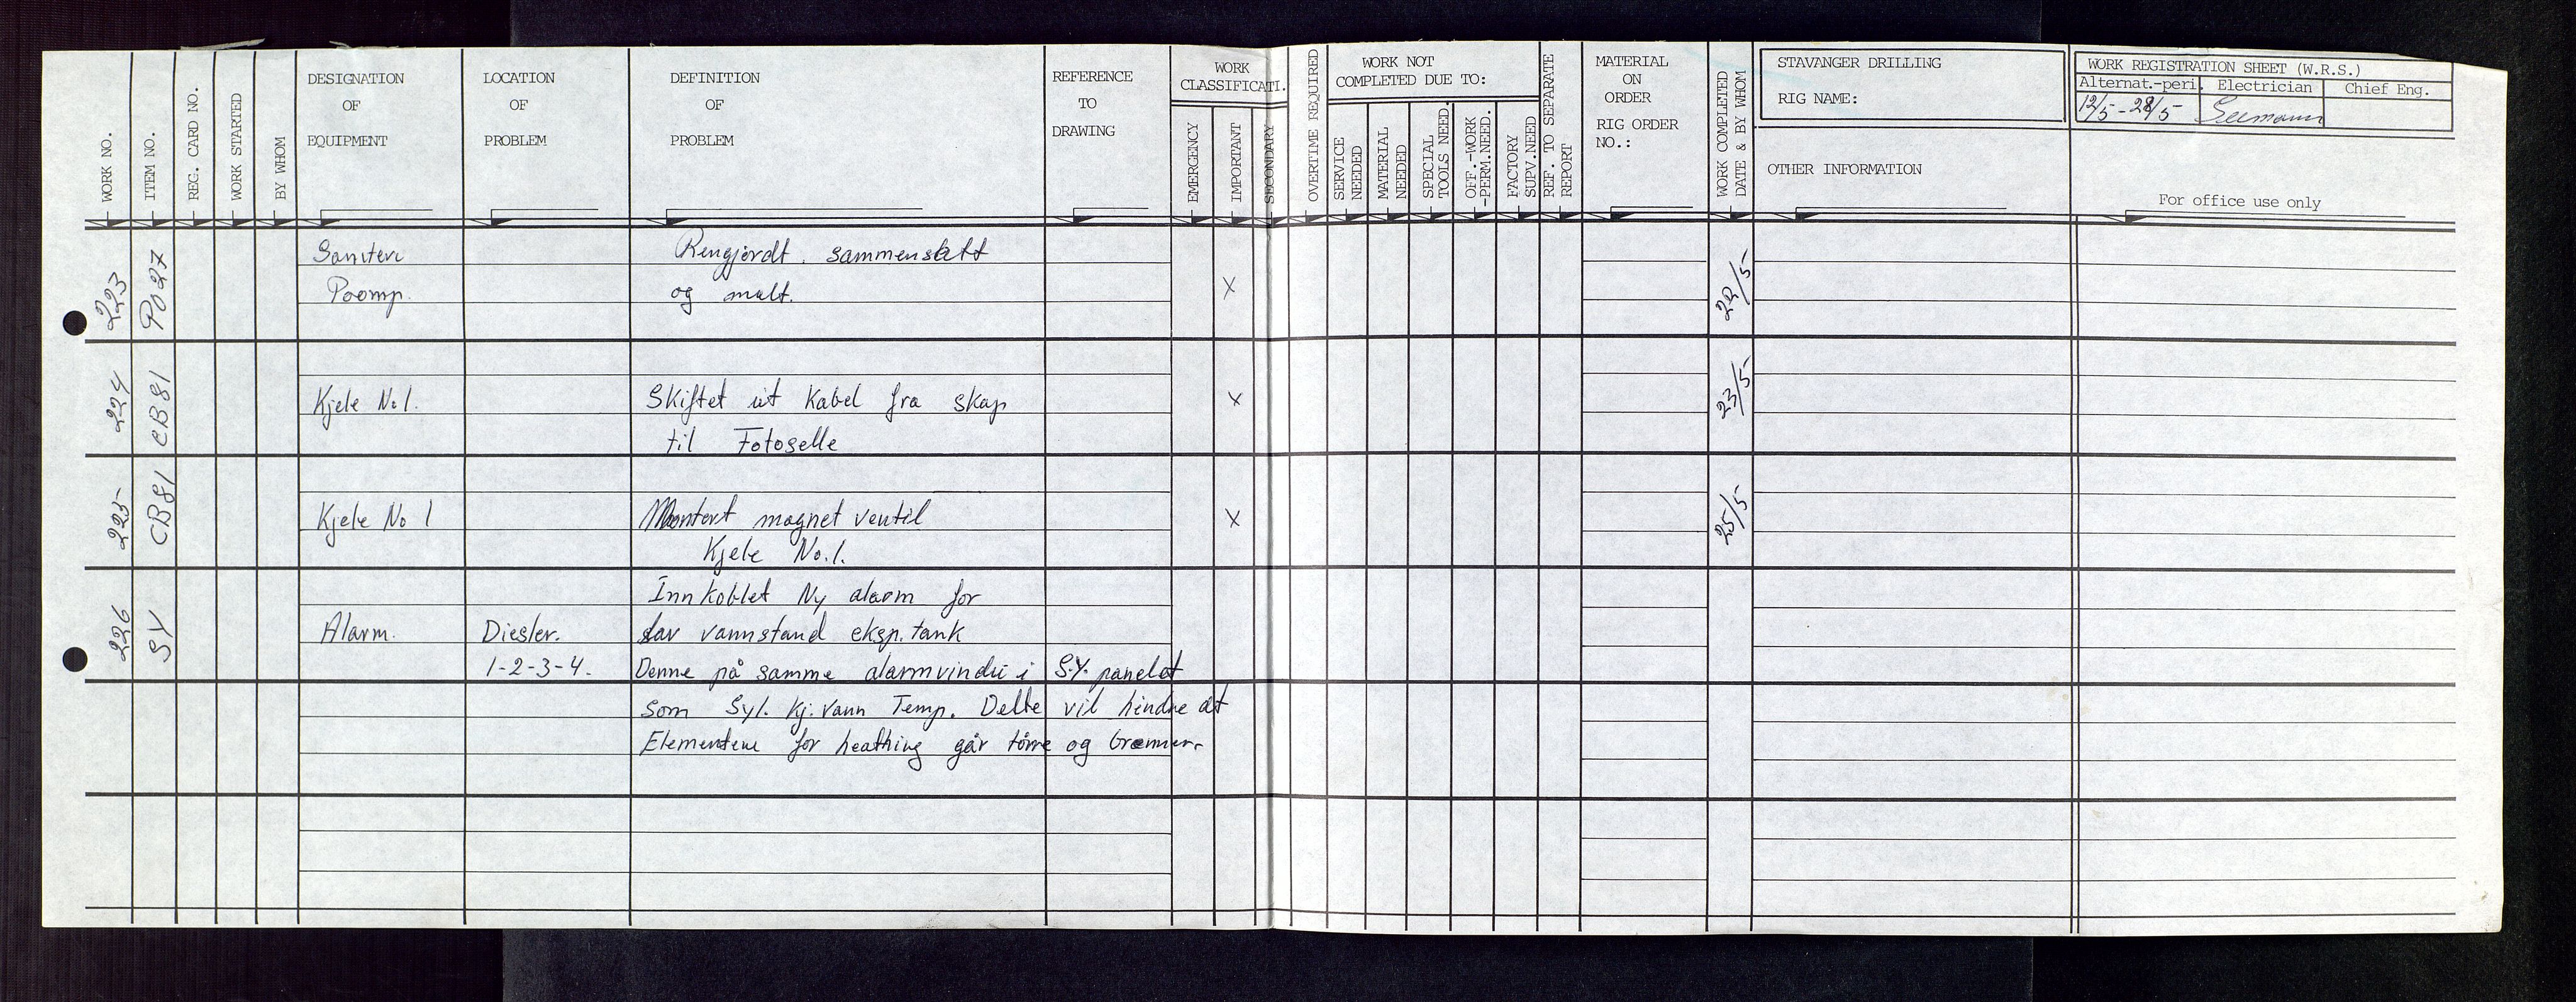 WORK NO.
ITEM NO.
REG. CARD NO.
WORK STARTED
BY WHOM
DESIGNATION
OF
EQUIPMENT
LOCATION
OF
PROBLEM
DEFINITION
OF
PROBLEM
REFERENCE
TO
DRAWING
WORK
CLASSIFICATI.
EMERGENCY
IMPORTANT
SECONDARY
OVERTIME REQUIRED
WORK NOT
COMPLETED DUE TO:
SERVICE
NEEDED
MATERIAL
NEEDED
SPECIAL
TOOLS NEED.
OFF.-WORK
-PERM.NEED.
FACTORY
SUPV.NEED
REF. TO SEPARATE
REPORT
MATERIAL
ON
ORDER
RIG ORDER
NO.:
WORK COMPLETED
DATE & BY WHOM
STAVANGER DRILLING
RIG NAME:
OTHER INFORMATION
WORK REGISTRATION SHEET (W.R.S.)
Alternat.-peri. Electrician Chief Eng.
12/5-28/5 Seemann
For office use only
223 PO27
Saniter
Poomp.
Rengjördt. sammensatt
og malt.
X
22/5
224 CB81
Kjele No1.
Skiftet ut Kabel fra skap
til Fotoselle
X
23/5
225 CB81
Kjele No 1
Montert magnet ventil
Kjele No.1.
X
25/5
226 SY
Alarm.
Diesler.
1-2-3-4.
Innkoblet Ny alarm for
lav vannstand eksp. tank
Denne på samme alarmvindu i S.Y. panelet
som Syl. Kj. Vann Temp. Dette vil hindre at
Elementene for heathing går törre og brenner.